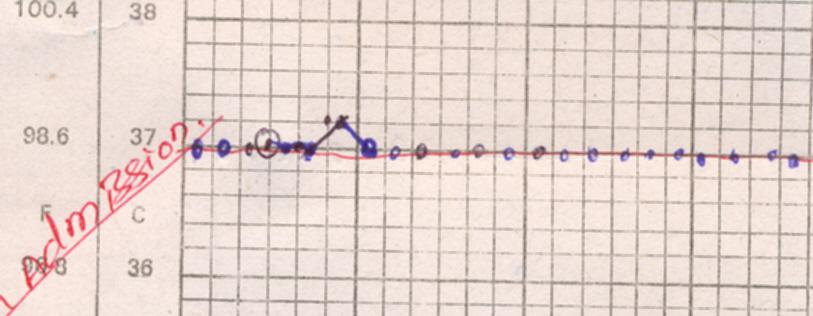 100.4 38
98.6 37
F C
96.8 36
Admission.